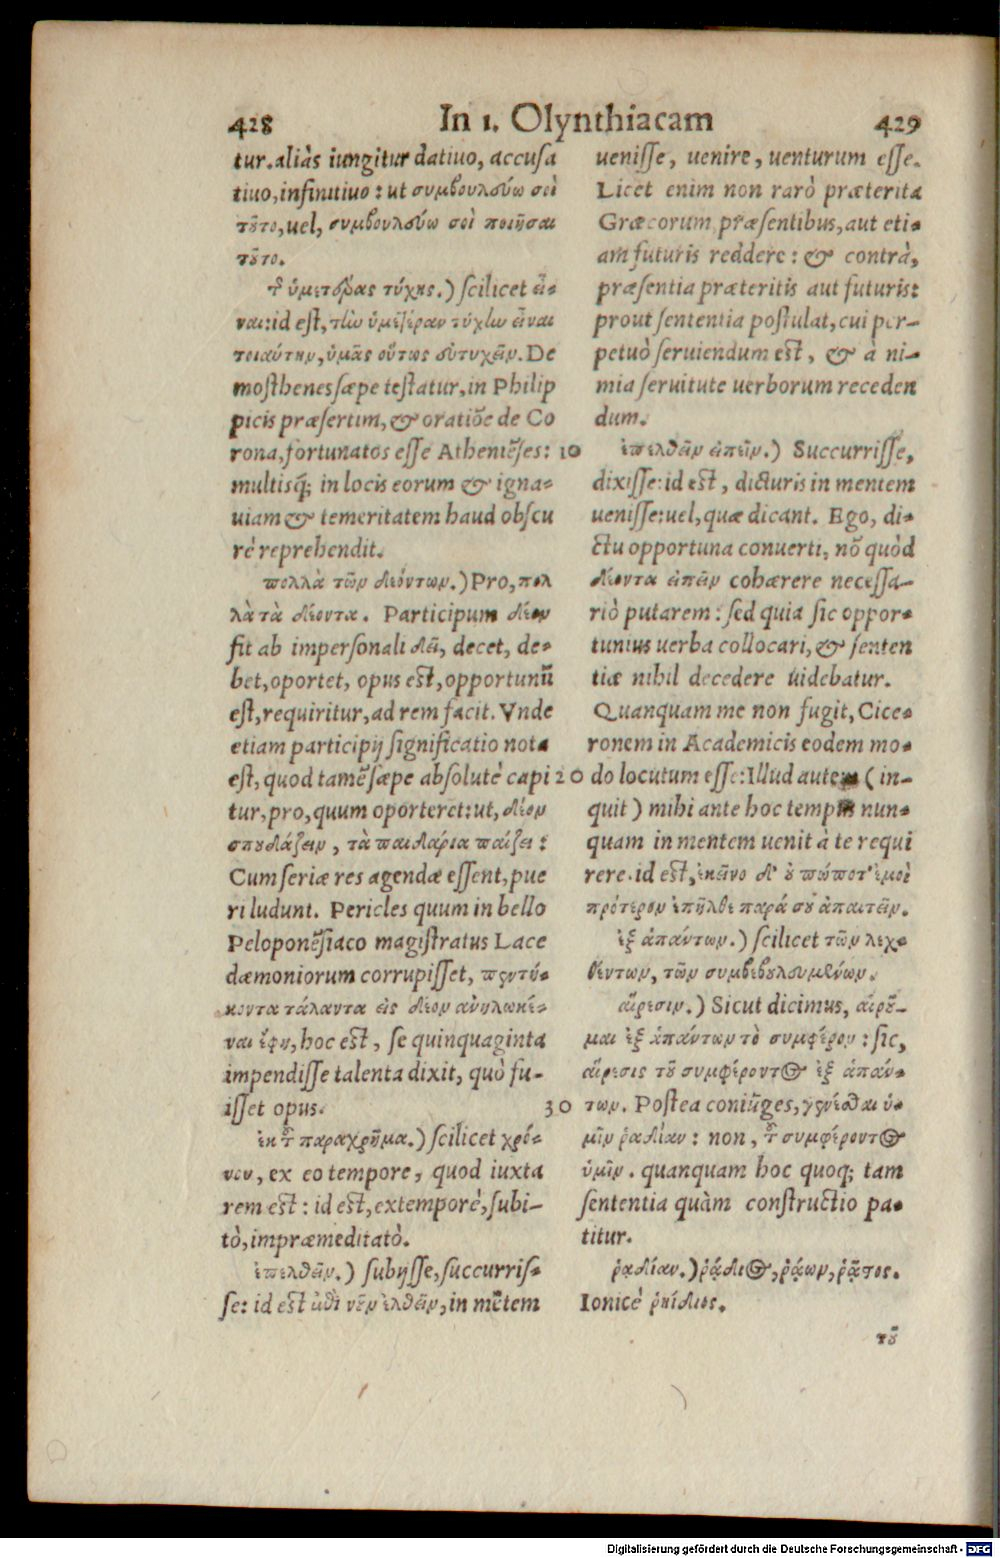 428 In 1. Olynthiacam 429
tur. aliàs iungitur datiuo, accusa
tiuo, infinitiuo: ut συμβουλεύω σοὶ
τοῦτο, uel, συμβουλεύω σοὶ ποιῆσαι
τοῦτο.
τῆς ὑμετέρας τύχης.) scilicet εἶ-
ναι: id est, τὴν ὑμετέραν τύχην εἶναι
τοιαύτην, ὑμᾶς οὕτως εὐτυχεῖν. De
mosthenes sæpe testatur, in Philip
picis præsertim, & oratiõe de Co
rona, fortunatos esse Atheniẽses:
multisq́; in locis eorum & igna-
uiam & temeritatem haud obscu
rè reprehendit.
πολλὰ τῶν δεόντων.) Pro, πολ
λὰ τὰ δέοντα. Participum δέον
fit ab impersonali δεῖ, decet, de-
bet, oportet, opus est, opportunũ
est, requiritur, ad rem facit. Vnde
etiam participij significatio nota
est, quod tamẽ sæpe absolutè capi
tur, pro, quum oporteret: ut, δέον
σπουδάζειν, τὰ παιδάρια παίζει:
Cum seriæ res agendæ essent, pue
ri ludunt. Pericles quum in bello
Peloponẽsiaco magistratus Lace
dæmoniorum corrupisset, πεντή-
κοντα τάλαντα εἰς δέον ἀνηλωκέ-
ναι ἔφη, hoc est, se quinquaginta
impendisse talenta dixit, quò fu-
isset opus.
ἐκ τοῦ παραχρῆμα.) scilicet χρό-
νου, ex eo tempore, quod iuxta
rem est: id est, extemporè, subi-
tò, impræmeditatò.
ἐπελθεῖν.) subijsse, succurris-
se: id est εἰς νοῦν ἐλθεῖν, in mẽtem
10
20
30
uenisse, uenire, uenturum esse.
Licet enim non rarò præterita
Græcorum præsentibus, aut eti-
am futuris reddere: & contrà,
præsentia præteritis aut futuris:
prout sententia postulat, cui per-
petuò seruiendum est, & à ni-
mia seruitute uerborum receden
dum.
ἐπελθεῖν εἰπεῖν.) Succurrisse,
dixisse: id est, dicturis in mentem
uenisse: uel, quæ dicant. Ego, di-
ctu opportuna conuerti, nõ quòd
δέοντα εἰπεῖν cohærere necessa-
riò putarem: sed quia sic oppor-
tunius uerba collocari, & senten
tiæ nihil decedere uidebatur.
Quanquam me non fugit, Cice-
ronem in Academicis eodem mo-
do locutum esse: Illud autem (in-
quit) mihi ante hoc tempus nun-
quam in mentem uenit à te requi
rere. id est, ἐκεῖνο δ' οὐ πώποτ' ἐμοὶ
πρότερον ἐπῆλθε παρά σου ἀπαιτεῖν.
ἐξ ἁπάντων.) scilicet τῶν λεχ-
θέντων, τῶν συμβεβουλευμένων.
αἵρεσιν.) Sicut dicimus, αἱροῦ-
μαι ἐξ ἁπάντων τὸ συμφέρον: sic,
αἵρεσις τοῦ συμφέροντος ἐξ ἁπάν-
των. Postea coniũges, γενέσθαι ὑ-
μῖν ῥᾳδίαν: non, τοῦ συμφέροντος
ὑμῖν. quanquam hoc quoq; tam
sententia quàm constructio pa-
titur.
ῥᾳδίαν.) ῥᾴδιος, ῥᾴων, ῥᾷστος.
Ionicè ῥηίδιος.
τοῦ
Digitalisierung gefördert durch die Deutsche Forschungsgemeinschaft - DFG